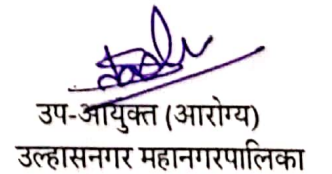 उप-आयुक्त (आरोग्य)
उल्हासनगर महानगरपालिका